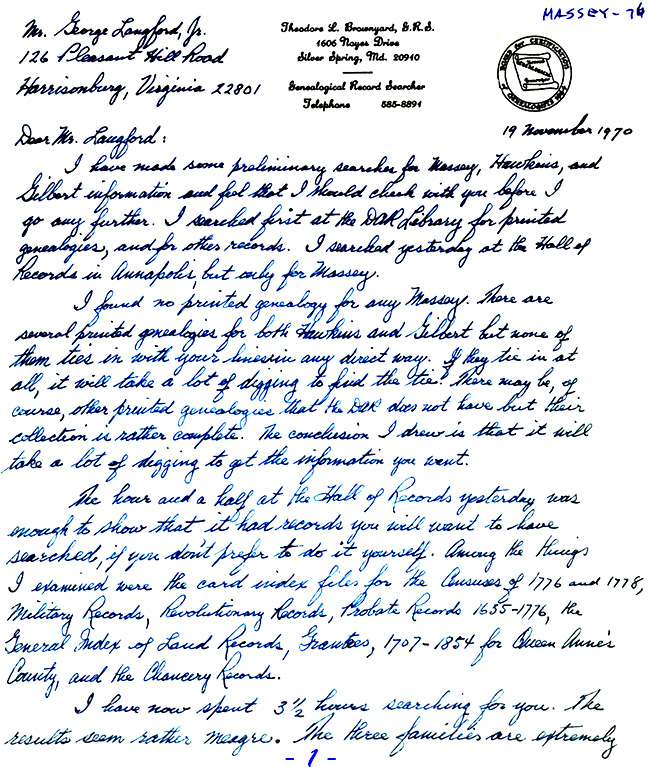 MASSEY-76
Mr. George Langford, Jr.
126 Pleasant Hill Road
Harrisonburg, Virginia 22801
Theodore L. Brownyard, G.R.S.
1606 Noyes Drive
Silver Spring, Md. 20910
Genealogical Record Searcher
Telephone 585-8891
19 November 1970
Dear Mr. Langford:
I have made some preliminary searches for Massey, Hawkins, and
Gilbert information and feel that I should check with you before I
go any further. I searched first at the DAR Library for printed
genealogies, and for other records. I searched yesterday at the Hall of
Records in Annapolis, but only for Massey.
I found no printed genealogy for any Massey. There are
several printed genealogies for both Hawkins and Gilbert but none of
them ties in with your lines in any direct way. If they tie in at
all, it will take a lot of digging to find the tie. There may be, of
course, other printed genealogies that the DAR does not have but their
collection is rather complete. The conclusion I drew is that it will
take a lot of digging to get the information you want.
The hour and a half at the Hall of Records yesterday was
enough to show that it had records you will want to have
searched, if you don't prefer to do it yourself. Among the things
I examined were the card index files for the Censuses of 1776 and 1778,
Military Records, Revolutionary Records, Probate Records 1635-1776, the
General Index of Land Records, Grantees, 1707-1854 for Queen Anne's
County, and the Chancery Records.
I have now spent 3 1/2 hours searching for you. The
results seem rather meagre. The three families are extremely
- 1 -